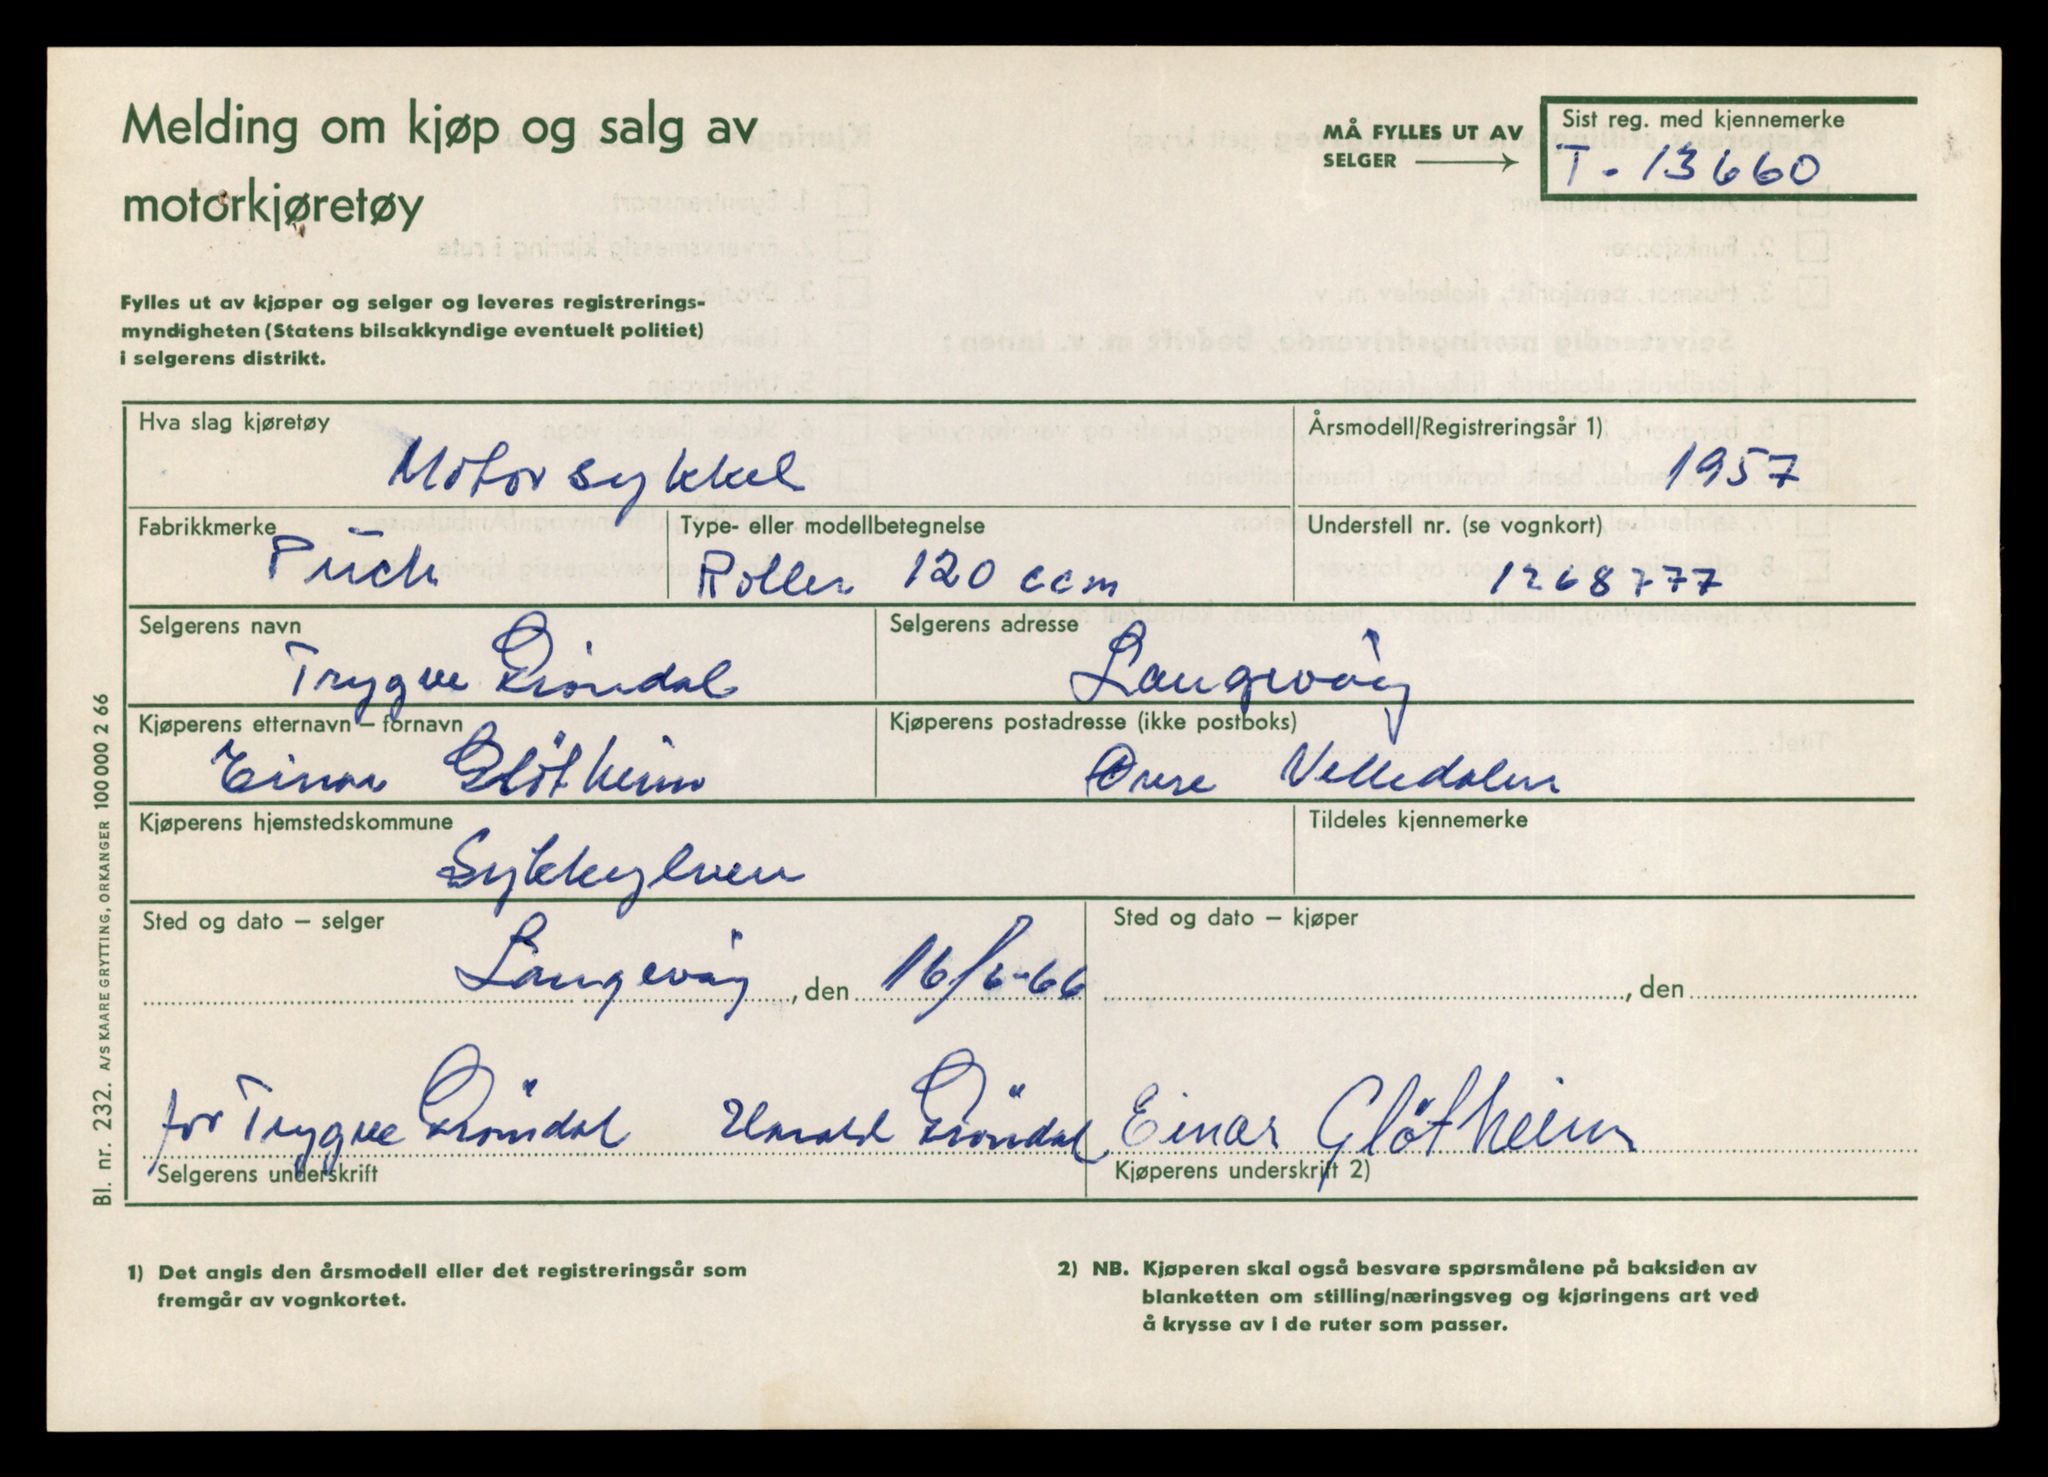 Melding om kjøp og salg av
motorkjøretøy
MÅ FYLLES UT AV
SELGER
Sist reg. med kjennemerke
T - 13660
Fylles ut av kjøper og selger og leveres registrerings-
myndigheten (Statens bilsakkyndige eventuelt politiet)
i selgerens distrikt.
Hva slag kjøretøy
Motorsykkel
Årsmodell/Registreringsår 1)
1957
Fabrikkmerke
Puch
Type- eller modellbetegnelse
Roller 120 ccm
Understell nr. (se vognkort)
1268777
Selgerens navn
Trygve Gröndal
Selgerens adresse
Langevåg
Kjøperens etternavn – fornavn
Einar Glötheim
Kjøperens postadresse (ikke postboks)
Øvre Velledalen
Kjøperens hjemstedskommune
Sykkylven
Tildeles kjennemerke
Sted og dato – selger
Langevåg, den 16/6-66
Sted og dato – kjøper
, den
for Trygve Gröndal Harald Gröndal
Selgerens underskrift
Einar Glötheim
Kjøperens underskrift 2)
1) Det angis den årsmodell eller det registreringsår som
fremgår av vognkortet.
2) NB. Kjøperen skal også besvare spørsmålene på baksiden av
blanketten om stilling/næringsveg og kjøringens art ved
å krysse av i de ruter som passer.
Bl. nr. 232. A/S KAARE GRYTTING, ORKANGER 100 000 2 66